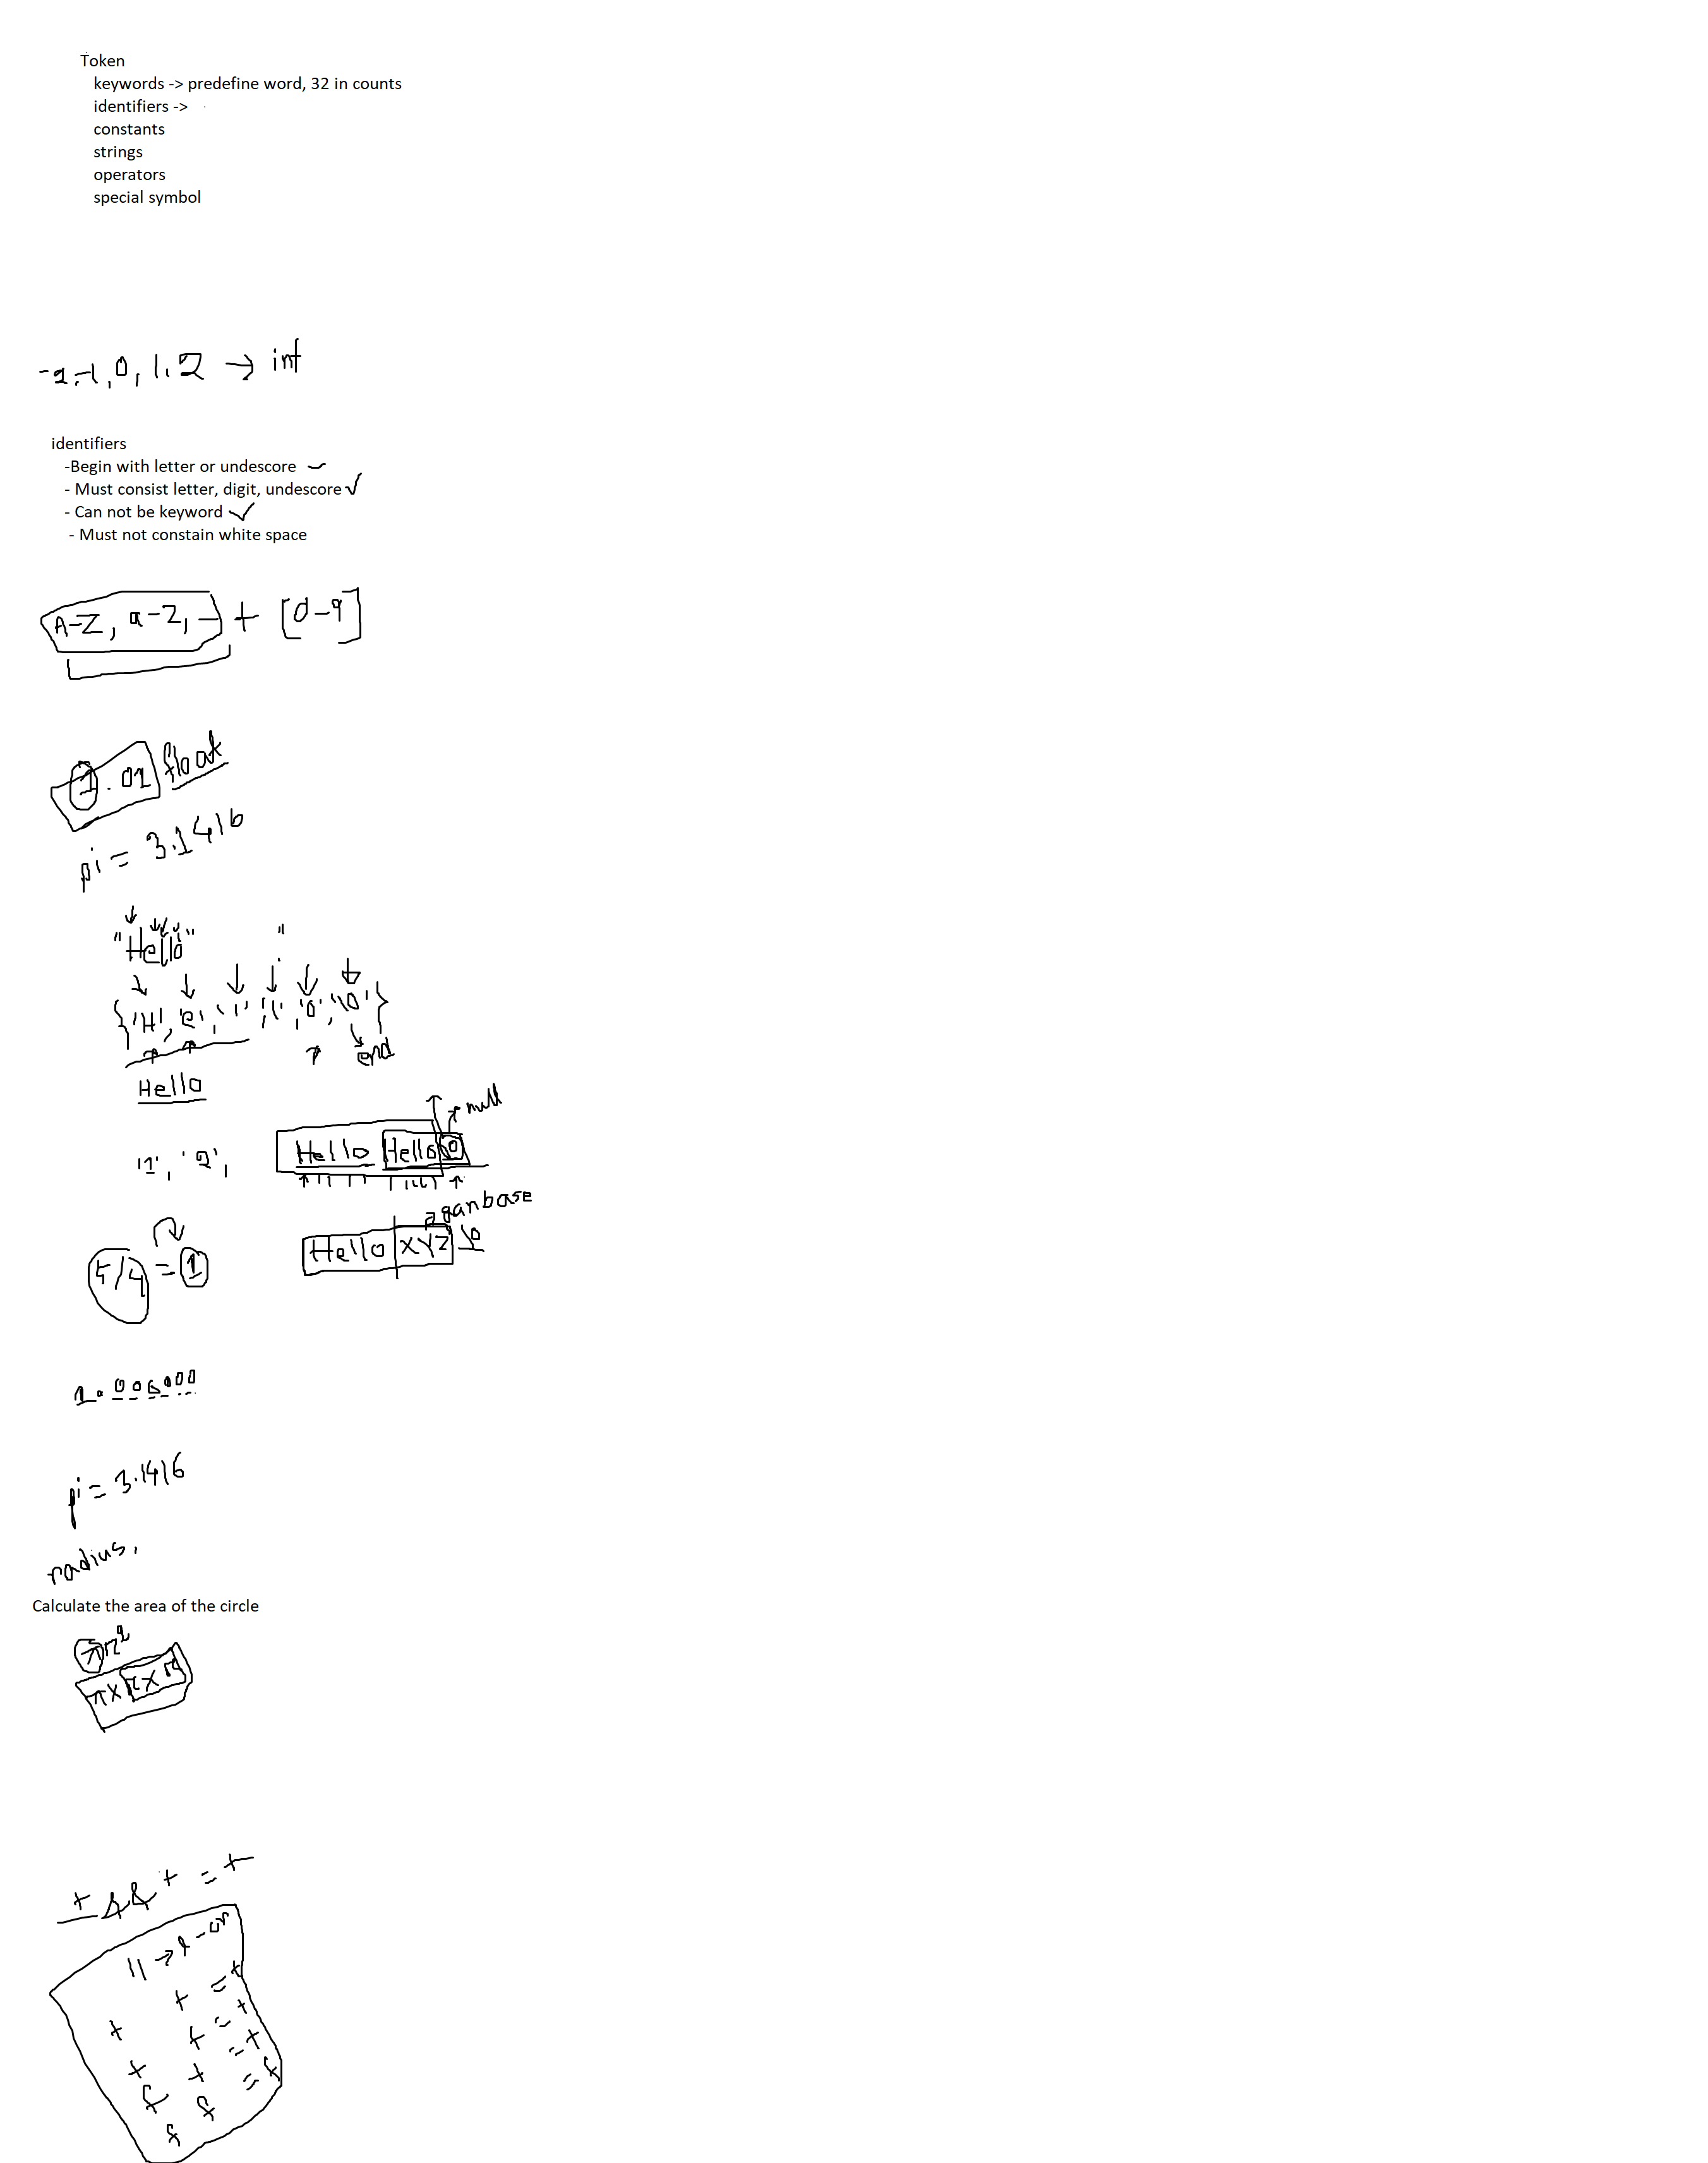 Token
keywords -> predefine word, 32 in counts
identifiers ->
constants
strings
operators
special symbol
-2,-1, 0, 1, 2 → int
identifiers
-Begin with letter or undescore
- Must consist letter, digit, undescore ✓
- Can not be keyword ✓
- Must not constain white space
A-Z, a-z, _ + [0-9]
1.01 float
pi = 3.1416
"Hello" "
{'H', 'e', 'l', 'l', 'o', '\0'}
end
Hello
null
'1', '2',
Hello Hello \0
ganbase
Hello XYZ \0
5/4 = 1
1.006000
pi = 3.1416
radius,
Calculate the area of the circle
πr²
π × r × r
+ && + = +
|| → or
+ + = +